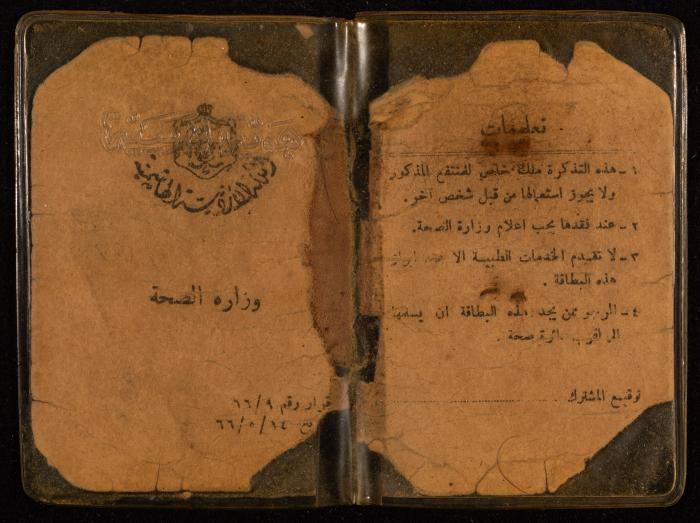 المملكة الأردنية الهاشمية
وزارة الصحة
قرار رقم ٦٦/٩
٦٦/٥/١٤
تعليمات
١ - هذه التذكرة ملك خاص للمنتفع المذكور
ولا يجوز استعمالها من قبل شخص آخر.
٢ - عند فقدها يجب اعلام وزارة الصحة.
٣ - لا تقدم الخدمات الطبية الا عند ابراز
هذه البطاقة .
٤ - المرجو ممن يجد هذه البطاقة ان يسلمها
الى اقرب دائرة صحة .
توقيع المشترك